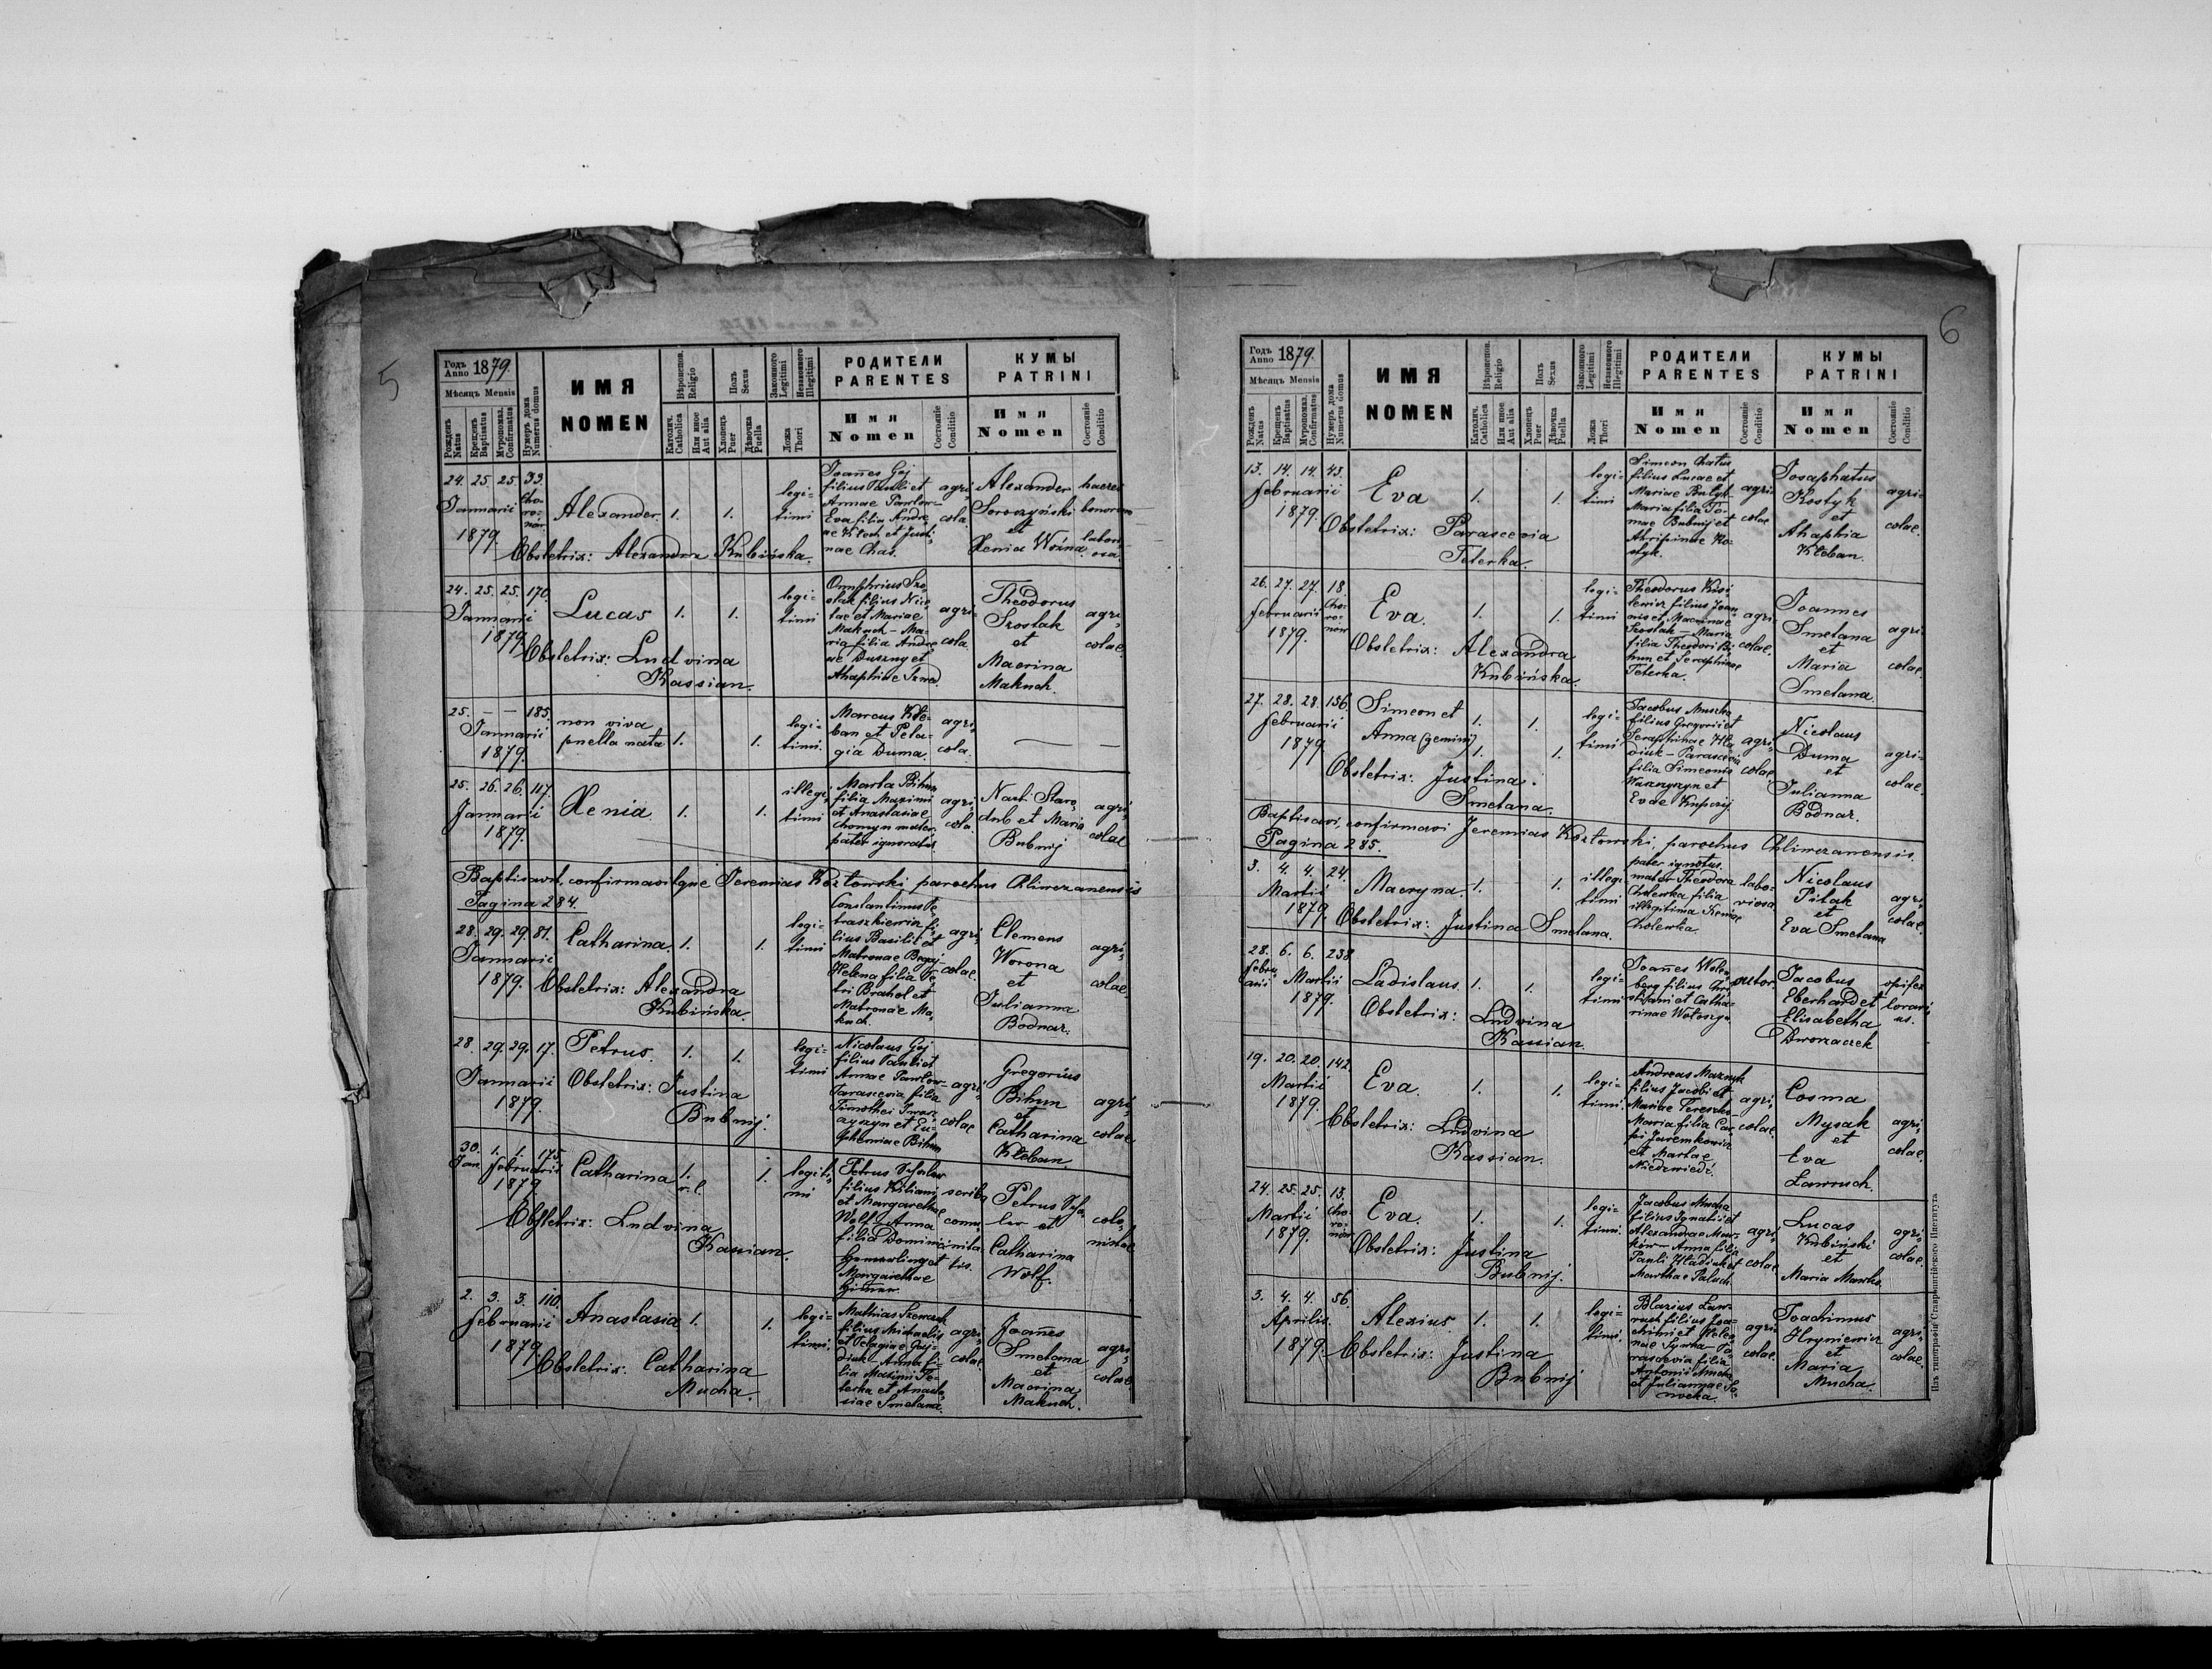 5
Годъ Anno 1879.
Мѣсяцъ Mensis
Рожденъ Natus
Крещенъ Baptisatus
Мѵропомаз. Confirmatus
Нумеръ дома Numerus domus
ИМЯ
NOMEN
Вѣроисповѣд. Religio
Католич. Catholica
Или иное Aut alia
Полъ Sexus
Хлопецъ Puer
Дѣвочка Puella
Законного Legitimi
Незаконного Illegitimi
Ложа Thori
РОДИТЕЛИ
PARENTES
Имя
Nomen
Состояніе Conditio
КУМЫ
PATRINI
Имя
Nomen
Состояніе Conditio
24. 25. 25. 33.
Januarii
1879.
Alexander. 1. 1.
legi=
timi
Joañes Goj
filius Pauli et
Annae Pawlow
Eva filia Andre
ae Kłech et Justi
nae Chas.
agri
cola
Alexander
Soroczyński
et
Xenia Woźna
haeres
bonorum
labori
osa
Obstetrix: Alexandra Kubińska.
24. 25. 25. 170.
Januarii
1879.
Lucas 1. 1.
legi=
timi
Onuphrius Szo
stak filius Nico
lae et Mariae
Makuch - Ma
ria filia Andre
ae Duszny et
Ahaphiae Szwed.
agri
cola.
Theodorus
Szostak
et
Macrina
Makuch.
agri
colae.
Obstetrix: Ludvina
Kassian.
25. — — 185.
Januarii
1879.
non viva
puella nata 1. 1.
legi=
timi.
Marcus Kłe=
ban et Pela=
gia Duma.
agri
cola.
25. 26. 26. 117.
Januarii
1879.
Xenia 1. 1.
illegi
timi
Marta Bihun
filia Maximi
et Anastasiae
Chomyn mater
pater ignoratus
agri
cola.
Nasti Staro
dub et Maria
Bubnij
agri
colae
Baptisavit, confirmavitque Jeremias Kozłowski parochus Chliwczanensis
Pagina 284.
28. 29. 29. 81.
Januarii
1879.
Catharina. 1. 1.
legi=
timi
Constantinus Pe
traszkiewicz fi
lius Basilii et
Matronae Begaj
Helena filia Pe
tri Brahol et
Matronae Ma
kuch.
agri
colae.
Clemens
Worona
et
Julianna
Bodnar.
agri
colae
Obstetrix: Alexandra
Kubińska.
28. 29. 29. 17.
Januarii
1879.
Petrus. 1. 1.
legi=
timi
Nicolaus Goj
filius Pauli et
Annae Pawlow-
Parascevia filia
Timothei Iwan
czyzyn et Eu
phemiae Bihun
agri
colae
Gregorius
Bihun
et
Catharina
Kłeban.
agri
colae
Obstetrix: Justina
Bubnij.
30. 1. 1. 175.
Jan. februarii
1879
Catharina 1.
r. l. 1.
legiti
mi
Petrus Schaler
filius Kiliani
et Margarethae
Wolf - Anna
filia Dominici
et
Margarethae
scriba
commu
nita
tis.
Petrus Scha
ler et
Catharina
Wolf.
colo
nistae
Obstetrix: Ludvina
Kassian.
2. 3. 3. 110.
februarii
1879.
Anastasia. 1. 1.
legi=
timi.
Mathias Szewczuk
filius Michaelis
et Pelagiae Goj=
diuk - Anna fi=
lia Maximi Te=
terka et Anasta
siae Smetana.
agri
colae
Joañes
Smetana
et
Macrina
Makuch.
agri
colae
Obstetrix: Catharina
Mucha.
6
Годъ Anno 1879.
Мѣсяцъ Mensis
Рожденъ Natus
Крещенъ Baptisatus
Мѵропомаз. Confirmatus
Нумеръ дома Numerus domus
ИМЯ
NOMEN
Вѣроисповѣд. Religio
Католич. Catholica
Или иное Aut alia
Полъ Sexus
Хлопецъ Puer
Дѣвочка Puella
Законного Legitimi
Незаконного Illegitimi
Ложа Thori
РОДИТЕЛИ
PARENTES
Имя
Nomen
Состояніе Conditio
КУМЫ
PATRINI
Имя
Nomen
Состояніе Conditio
13. 14. 14. 43.
februarii
1879.
Eva 1. 1.
legi=
timi
Simeon
filius Lucae et
Mariae
Maria filia Tho
mae Bubnij et
Agripinae Ko=
styk.
agri
colae
Josaphatus
Kostyk
et
Ahaphia
Kłeban.
agri
colae.
Obstetrix: Parascevia
Teterka.
26. 27. 27. 18
februarii
1879.
Eva. 1. 1.
legi=
timi
Theodorus Kusi
lewicz filius Joan
nis et Macrinae
Szostak - Maria
filia Theodori Bi
hun et Seraphinae
Teterka.
agri
colae.
Joannes
Smetana
et
Maria
Smetana.
agri
colae.
Obstetrix: Alexandra
Kubińska.
27. 28. 28. 156.
februarii
1879.
Simeon et 1. 1.
Anna (gemini) 1. 1.
legi=
timi
Jacobus Muszka
filius Gregorii et
Seraphinae Hła
diuk - Parascevia
filia Simeonis
et
Evae
agri
colae
Nicolaus
Duma
et
Julianna
Bodnar.
agri=
colae.
Obstetrix: Justina
Smetana.
Baptisavi, confirmavi Jeremias Kozłowski, parochus Chliwczanensis.
Pagina 285.
3. 4. 4. 24.
Martii
1879.
Macryna. 1. 1.
illegi
timi
pater ignotus
mater Theodora
Cholewka filia
illegitima Xeniae
Cholewka.
labo=
riosa.
Nicolaus
Piłak
et
Eva Smetana
agri
colae.
Obstetrix: Justina Smetana.
28. 6. 6. 238
febru
arii Martii
1879.
Ladislaus. 1. 1.
legi=
timi
Joañes Wolen
berg filius Chri
stiani et Catha=
rinae Wołoszyn.
sutor.
Jacobus
Eberhard et
Elisabetha
Dworzaczek
opifex
Obstetrix: Ludvina
Kassian.
19. 20. 20. 142.
Martii
1879.
Eva. 1. 1.
legi=
timi.
Andreas Mazuryk
filius Jacobi et
Mariae Tereszko
Maria filia Car
pi Jaremkowicz
et Martae
Niedzwiedź.
agri
colae.
Cosma
Mysak
et
Eva
Ławruch.
agri
colae.
Obstetrix: Ludvina
Kassian.
24. 25. 25. 13.
Martii
1879.
Eva. 1. 1.
legi=
timi.
Jacobus Mucha
filius Ignatii et
Alexandrae
Anna filia
Pauli Hładiuk et
Marthae Paluch.
agri
colae.
Lucas
Kubiński
et
Maria
agri
colae.
Obstetrix: Justina
Bubnij.
3. 4. 4. 56.
Aprilis.
1879.
Alexius. 1. 1.
legi=
timi.
Blasius Ław=
ruch filius Joa=
chimi et Hele
nae - Pa
rascevia filia
Antonii Mucha
et Juliannae
agri
colae.
Joachimus
Hryniewicz
et
Maria
Mucha.
agri
colae.
Obstetrix: Justina
Bubnij
Изъ типографіи Ставропигійского Института